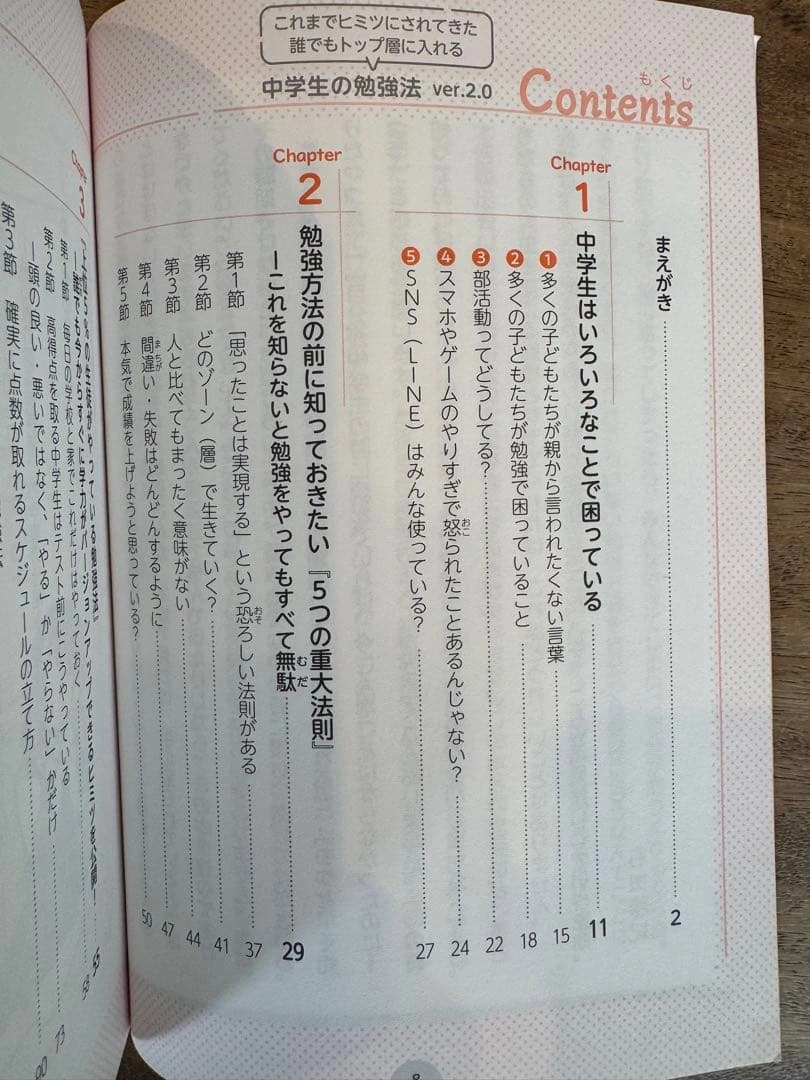 これまでヒミツにされてきた
誰でもトップ層に入れる
中学生の勉強法 ver.2.0
もくじ
Contents
まえがき 2
Chapter 1
中学生はいろいろなことで困っている 11
❶ 多くの子どもたちが親から言われたくない言葉 15
❷ 多くの子どもたちが勉強で困っていること 18
❸ 部活動ってどうしてる? 22
❹ スマホやゲームのやりすぎで怒られたことあるんじゃない? 24
おこ
❺ SNS(LINE)はみんな使っている? 27
Chapter 2
勉強方法の前に知っておきたい『5つの重大法則』
ーこれを知らないと勉強をやってもすべて無駄 29
むだ
第1節 「思ったことは実現する」という恐ろしい法則がある 37
おそ
第2節 どのゾーン(層)で生きていく? 41
第3節 人と比べてもまったく意味がない 44
第4節 間違い・失敗はどんどんするように 47
まちが
第5節 本気で成績を上げようと思っている? 50
Chapter 3
『上位5%の生徒がやっている勉強法』
ー誰でも今からすぐに学力がバージョンアップできるヒミツを公開! 55
第1節 毎日の学校と家でこれだけはやっておく 58
第2節 高得点を取る中学生はテスト前にこうやっている
ー頭の良い・悪いではなく、「やる」か「やらない」かだけ 73
第3節 確実に点数が取れるスケジュールの立て方 90
8